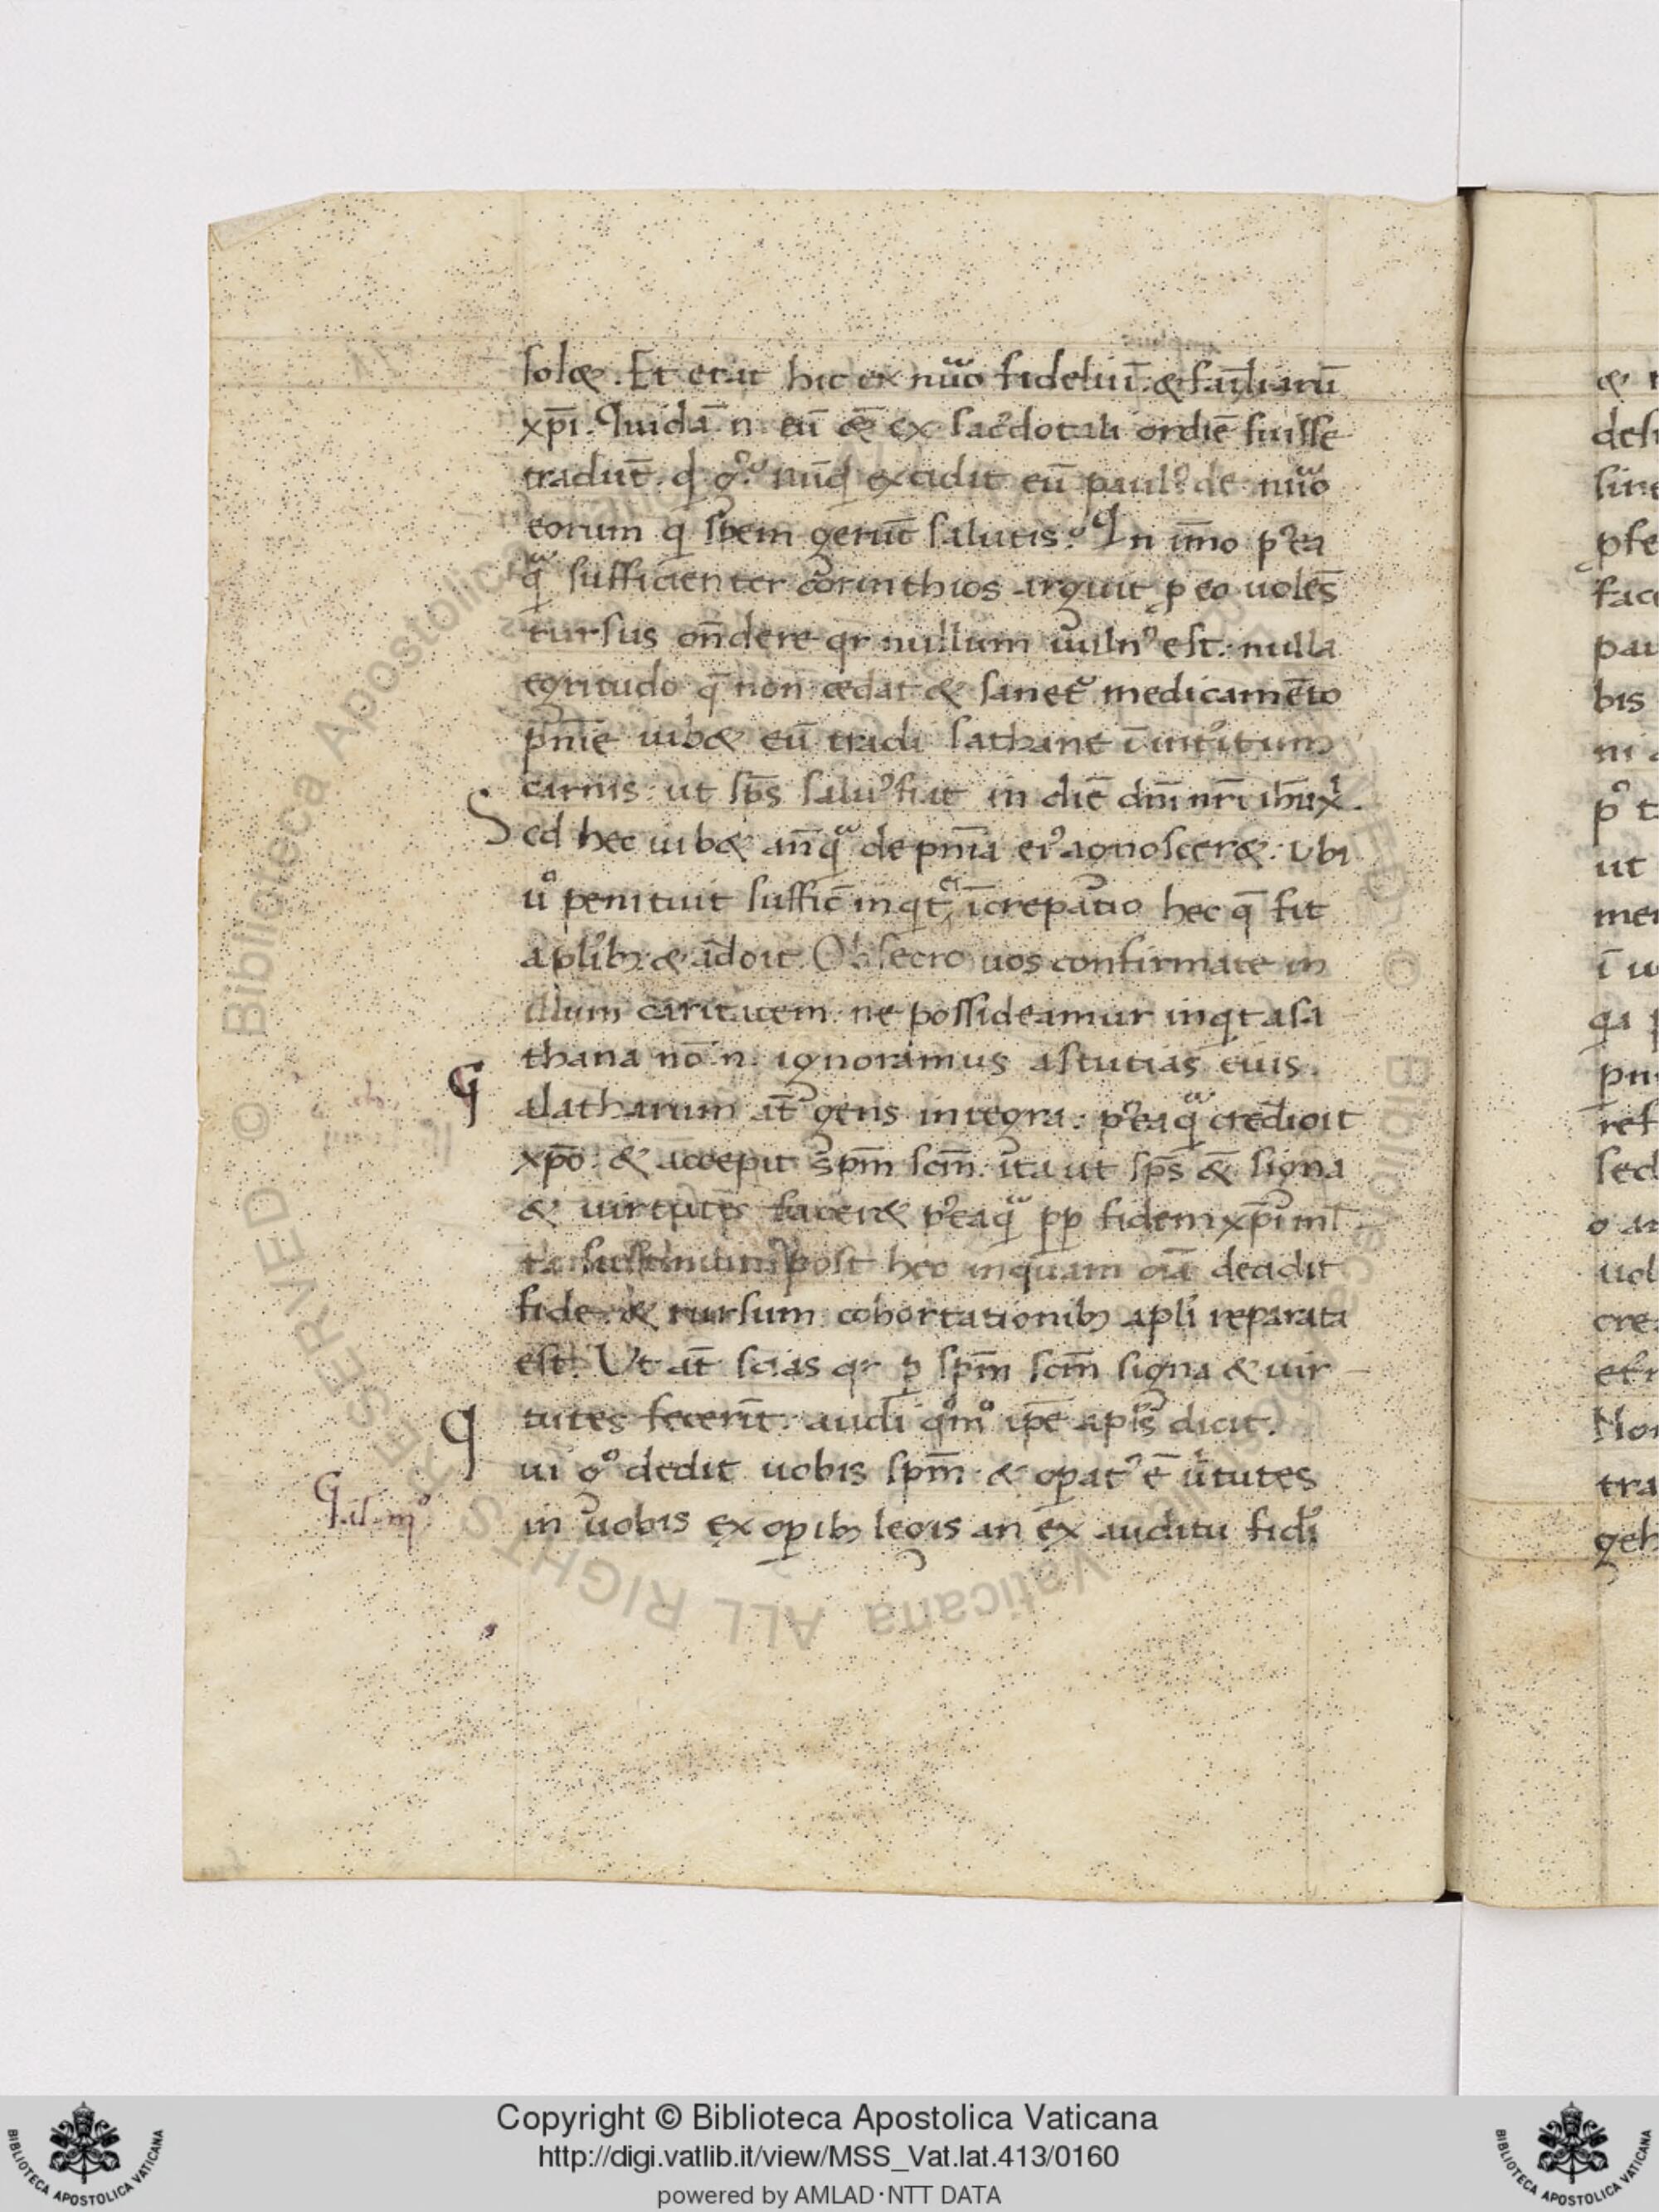 solet. Et erat hic ex nu͛o fideliū. & familiariū
xp̄i. Quidā n. eū & ex sac̾dotali ordiē fuisse
tradūt. qͥd gͦ. nūqͥd excidit eū paulꝰ de nu͛o
eorum qͥ spem gerūt salutis. In īmo p̾ea
qͣ sufficienter corinthios arguit ꝓ eo uolēs
rursus on̄dere qꝛ nullum uulnꝰ est. nulla
egritudo q̄ non cedat & sanetᷣ medicamēto
pn̄ie iubet eū tradi sathane ī int̾itum
carnis ut sp̄s saluꝰ fiat in diē dn̄i nr̄i ih̄u xͥ.
Sed hec iubet an̄qͣ de pn̄ia eiꝰ agnosceret. Ubi
uͦ penituit suffic̄ inqͥt īcrepatio hec q̄ fit
a plͥbꝫ & adīdit. Obsecro uos confirmate in
illum caritatem. ne possideamur inqͥt a sa
thana nō n. ignoramus astutias eius.
Galatharum aūt gens integra. p̾ea qͣ credidit
xp̄o. & accepit sp̄m sc̄m. ita ut sp̄s & signa
& uirtutes faceret p̾ea qͣ ꝓp fidem xp̄i ml̄
ta sustinuit post hec inquam oīa decidit
fide. & rursum cohortationibꝫ apl̄i reparata
est. Ut aūt scias qꝛ ꝑ sp̄m sc̄m signa & uir
tutes fecerīt. audi qͦmͦ ip̄e apl̄s dicit.
Qui gͦ dedit uobis sp̄m. & opatꝰ ē u̾tutes
Gal. mͦ
in uobis ex oꝑibꝫ legis an ex auditu fidei
Copyright © Biblioteca Apostolica Vaticana
http://digi.vatlib.it/view/MSS_Vat.lat.413/0160
powered by AMLAD·NTT DATA